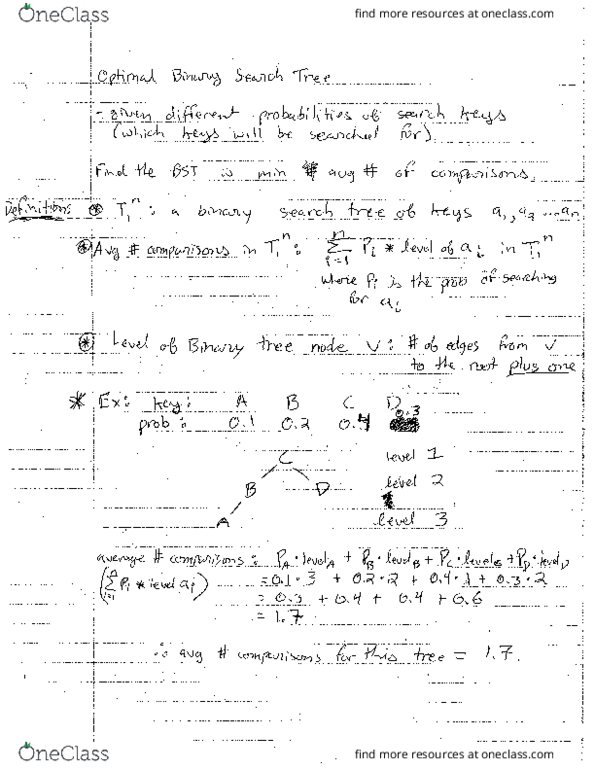 OneClass
find more resources at oneclass.com
Optimal Binary Search Tree
- given different probabilities of search keys
(which keys will be searched for)
Find the BST is min # avg # of comparisons.
Definitions * T₁ⁿ : a binary search tree of keys a₁, a₂ ... aₙ
* Avg # comparisons in T₁ⁿ : Σᵢ₌₁ⁿ Pᵢ * level of aᵢ in T₁ⁿ
where Pᵢ is the prob of searching
for aᵢ
* Level of Binary tree node v : # of edges from v
to the root plus one
* Ex: key: A B C D
prob: 0.1 0.2 0.4 0.3
C level 1
B D level 2
A level 3
average # comparisons: P_A · level_A + P_B · level_B + P_C · level_C + P_D · level_D
(Σᵢ₌₁ⁿ Pᵢ * level aᵢ) = 0.1 · 3 + 0.2 · 2 + 0.4 · 1 + 0.3 · 2
= 0.3 + 0.4 + 0.4 + 0.6
= 1.7
∴ avg # comparisons for this tree = 1.7.
OneClass
find more resources at oneclass.com